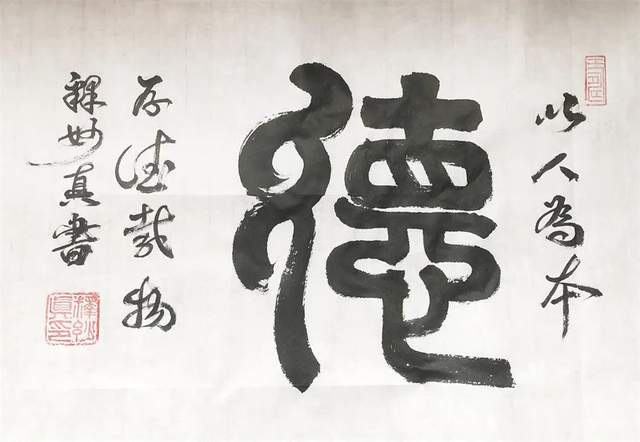 以人為本
德
厚德載物
釋妙真書
釋妙真印